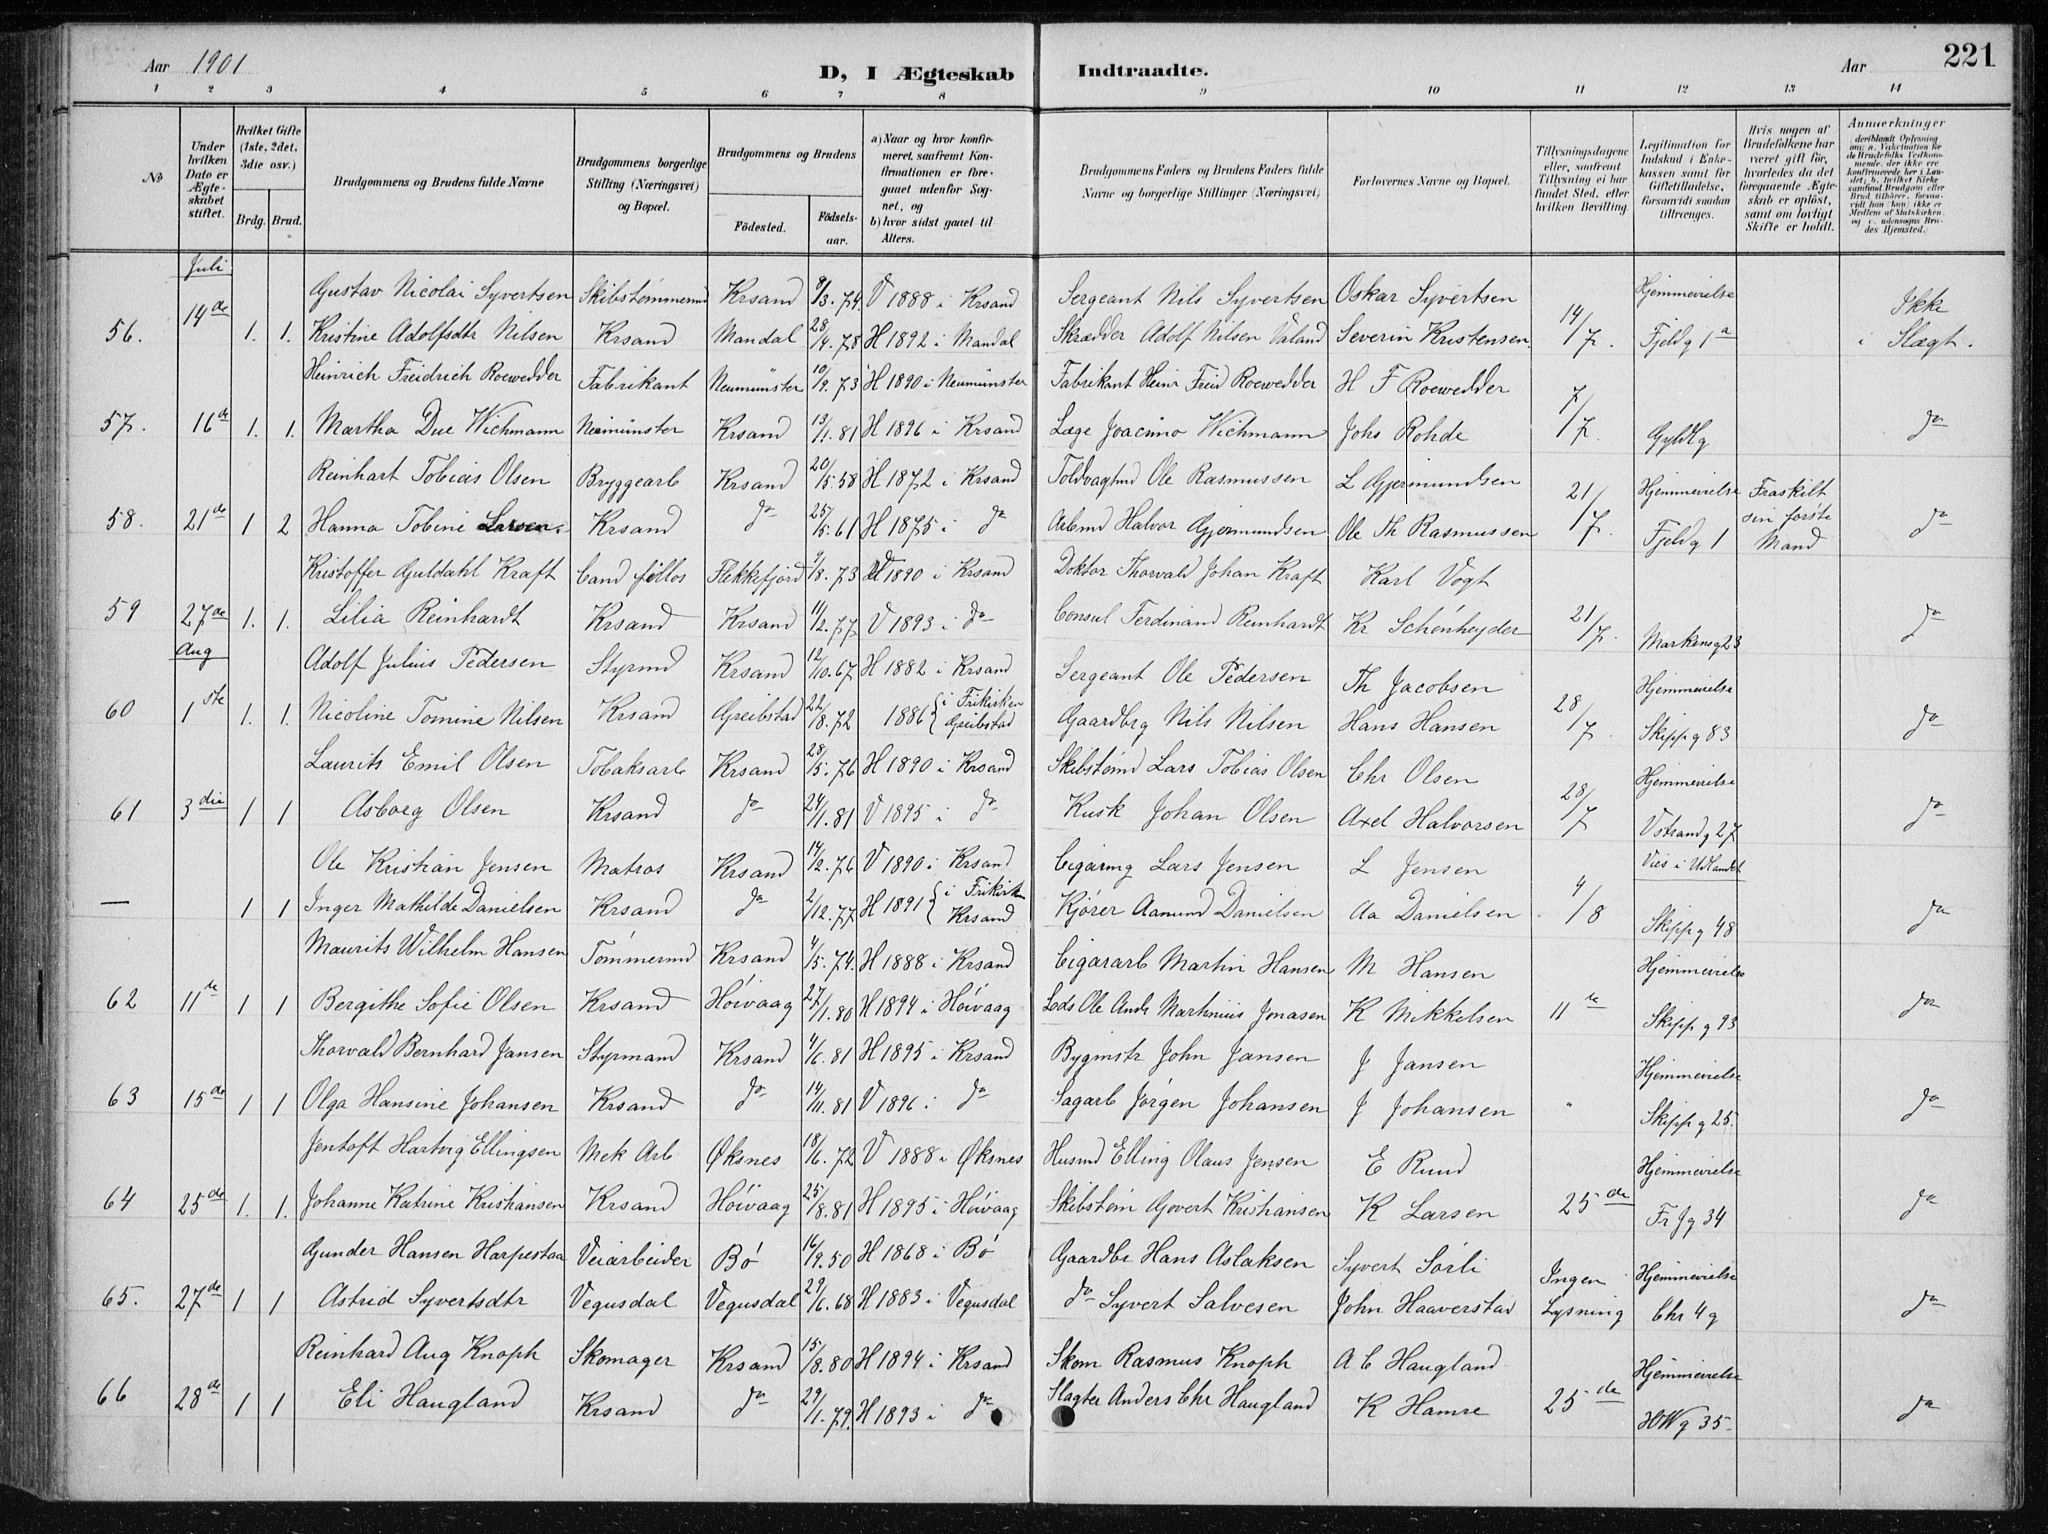 Aar 1901 D, I Ægteskab Indtraadte. Aar 221
1 2 3 4 5 6 7 8 9 10 11 12 13 14
No
Under hvilken Dato er Ægteskabet stiftet.
Hvilket Gifte (1ste, 2det, 3die osv.)
Brdg. Brud.
Brudgommens og Brudens fulde Navne
Brudgommens borgerlige Stilling (Næringsvei) og Bopæl.
Brudgommens og Brudens
Fødested. Fødselsaar.
a) Naar og hvor konfirmeret, saafremt Konfirmationen er foregaaet udenfor Sognet, og
b) hvor sidst gaaet til Alters.
Brudgommens Faders og Brudens Faders fulde Navne og borgerlige Stillinger (Næringsvei).
Forlovernes Navne og Bopæl.
Tillysningsdagene eller, saafremt Tillysning ei har fundet Sted, efter hvilken Bevilling.
Legitimation for Indskud i Enkekassen samt for Giftetilladelse, forsaavidt saadan tiltrænges.
Hvis nogen af Brudefolkene har været gift før, hvorledes da det foregaaende Ægteskab er opløst, samt om lovligt Skifte er holdt.
Anmærkninger deriblandt Oplysning om: a. Vaccination for de Brudefolks Vedkommende, der ikke ere konfirmerede her i Landet; b. hvilket Kirkesamfund Brudgom eller Brud tilhører, forsaavidt han (hun) ikke er Medlem af Statskirken, og c. udensogns Brudes Hjemsted.
Juli
Gustav Nicolai Syvertsen Skibstømmermd Krsand 8/3.74. V 1888 i Krsand Sergeant Nils Syvertsen Oskar Syvertsen Hjemmevielse Ikke
56. 14de 1. 1. Kristine Adolfsdtr Nilsen Krsand Mandal 28/4.78 H 1892 i Mandal Skrædder Adolf Nilsen Valand Severin Kristensen 14/7. Fjeldg 1a i Slægt.
Heinrich Freidrich Roewedder Fabrikant Neumünster 10/9.73 H 1890 i Neumünster Fabrikant Heinr Freid Roewedder H F Roewedder
57. 16de 1. 1. Martha Due Wichmann Neumünster Krsand 13/1.81 H 1896 i Krsand Læge Joacimo Wichmann Johs Rohde 7/7. Gyldlg do
Reinhart Tobias Olsen Bryggearb Krsand 20/5.58 H 1872 i Krsand Toldvagtmd Ole Rasmussen L Gjermundsen Hjemmevielse Fraskilt
58. 21de 1 2 Hanna Tobine Larsen Krsand do 25/5.61 H 1875 i do Arbmd Halvor Gjermundsen Ole Th Rasmussen 21/7. Fjeldg 1 sin første Mand do
Kristoffer Guldahl Kraft Cand fillos Flekkefjord 9/8.73 V 1890 i Krsand Doktor Thorvald Johan Kraft Karl Vogt
59 27de 1. 1. Lilia Reinhardt Krsand Krsand 11/2.77 V 1893 i do Consul Ferdinand Reinhardt Kr Schönheyder 21/7. Markensg 23 do
Aug
Adolf Julius Pedersen Styrmd Krsand 12/10.67 H 1882 i Krsand Sergeant Ole Pedersen Th Jacobsen Hjemmevielse
60 1ste 1. 1. Nicoline Tomine Nilsen Krsand Greibstad 22/8.72 1886 { i Frikirken Greibstad Gaardbrg Nils Nilsen Hans Hansen 28/7. Skippg 83 do
Laurits Emil Olsen Tobaksarb Krsand 28/5.76 H 1890 i Krsand Skibstømd Lars Tobias Olsen Chr Olsen Hjemmevielse
61 3die 1 1 Asborg Olsen Krsand do 24/1.81 V 1895 i do Kusk Johan Olsen Axel Halvorsen 28/7 Vstrandg 27 do
Ole Kristian Jensen Matros Krsand 14/2.76 V 1890 i Krsand Cigarmg Lars Jensen L Jensen Vies i Udlandet
— 1 1 Inger Mathilde Danielsen Krsand do 2/12.77 H 1891 { i Frikirk Krsand Kjører Aamund Danielsen Aa Danielsen 4/8 Skippg 48 do
Maurits Wilhelm Hansen Tømmermd Krsand 4/5.74. H 1888 i Krsand Cigararb Martin Hansen M Hansen Hjemmevielse
62 11te 1 1 Bergithe Sofie Olsen Krsand Høivaag 27/1.80 H 1894 i Høivaag Lods Ole Andr Martinius Jonasen K Mikkelsen 11de Skippg 93 do
Thorvald Bernhard Jansen Styrmand Krsand 4/6.81 H 1895 i Krsand Bygmstr John Jansen J Jansen Hjemmevielse
63 15de 1 1 Olga Hansine Johansen Krsand do 14/11.81 V 1896 i do Sagarb Jørgen Johansen J Johansen " Skippg 25. do
Jentoft Hartvig Ellingsen Mek Arb Øksnes 18/6.72 V 1888 i Øksnes Husmd Elling Olaus Jensen E Ruud Hjemmevielse
64 25de 1. 1. Johanne Katrine Kristiansen Krsand Høivaag 25/8.81 H 1895 i Høivaag Skibstøm Govert Kristiansen K Larsen 25de Fr Jg 34 do
Gunder Hansen Harpestaa Veiarbeider Bø 16/9.50 H 1868 i Bø Gaardbr Hans Aslaksen Syvert Sørli Ingen Hjemmevielse
65. 27de 1 1 Astrid Syvertsdtr Vegusdal Vegusdal 29/6.68 H 1883 i Vegusdal do Syvert Salvesen John Haaverstad Lysning Chr 4 g do
Reinhard Aug Knoph Skomager Krsand 15/8.80 H 1894 i Krsand Skom Rasmus Knoph A C Haugland Hjemmevielse
66 28de 1 1 Eli Haugland Krsand do 29/1.79. H 1893 i do Slagter Anders Chr Haugland K Hamre 25de HWg 35- do